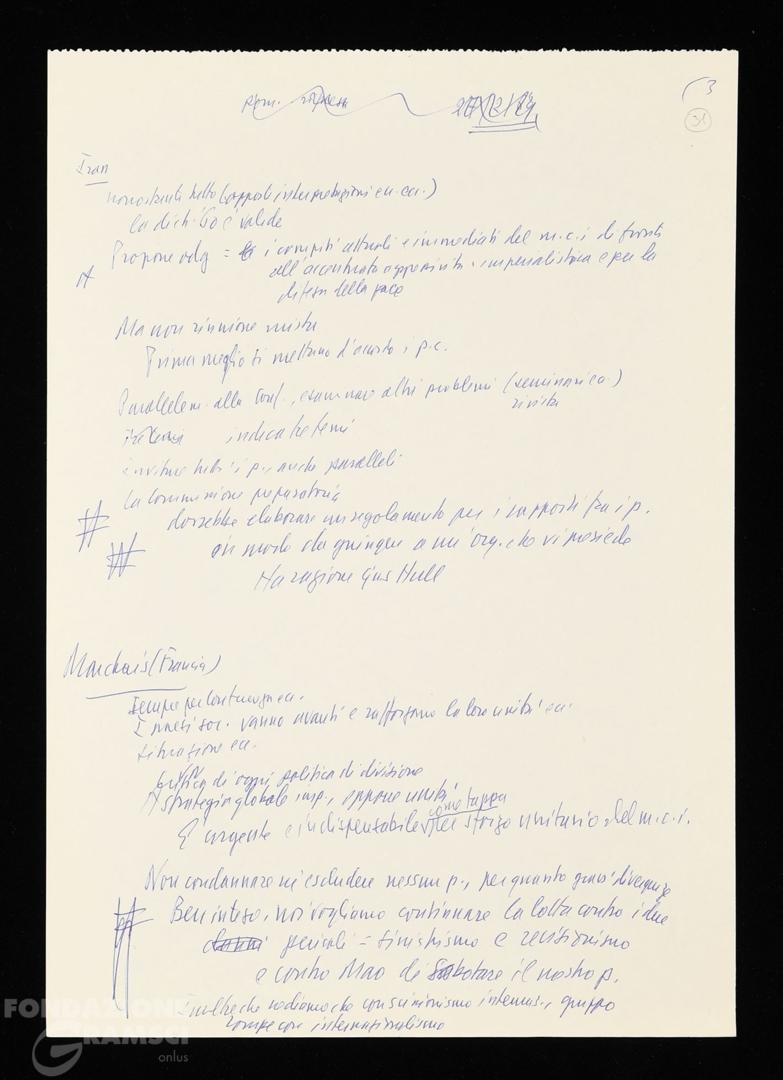 3
31
Iran
nonostante tutto (rapporti interpretazioni ecc.)
la dich. '60 è valida
Propone odg = i compiti attuali e immediati del m.c.i. di fronte
all'accentuata imperialistica e per la
difesa della pace
Ma non riunione mista
Prima meglio si mettano d'accordo i p.c.
Parallelem. alla Conf., esaminare altri problemi (seminari ecc.)
rivista
indicate temi
Invitare tutti i p., anche paralleli
La Commissione preparatoria
dovrebbe elaborare un regolamento per i rapporti fra i p.
in modo da giungere a un'org. che vi presieda
Ha ragione Gus Hall
Marchais (Francia)
Sempre per Conf.
I paesi soc. vanno avanti e rafforzano la loro unità ecc.
Situazione ecc.
Critica di ogni politica di divisione
A strategia globale imp., opporre unità
come tappa
È urgente e indispensabile per sforzo unitario del m.c.i.
Non condannare né escludere nessun p., per quanto gravi divergenze
Ben inteso, noi vogliamo continuare la lotta contro i due
pericoli = sinistrismo e revisionismo
e contro Mao di sabotare il nostro p.
gruppo
rompe con internazionalismo
FONDAZIONE
GRAMSCI
onlus